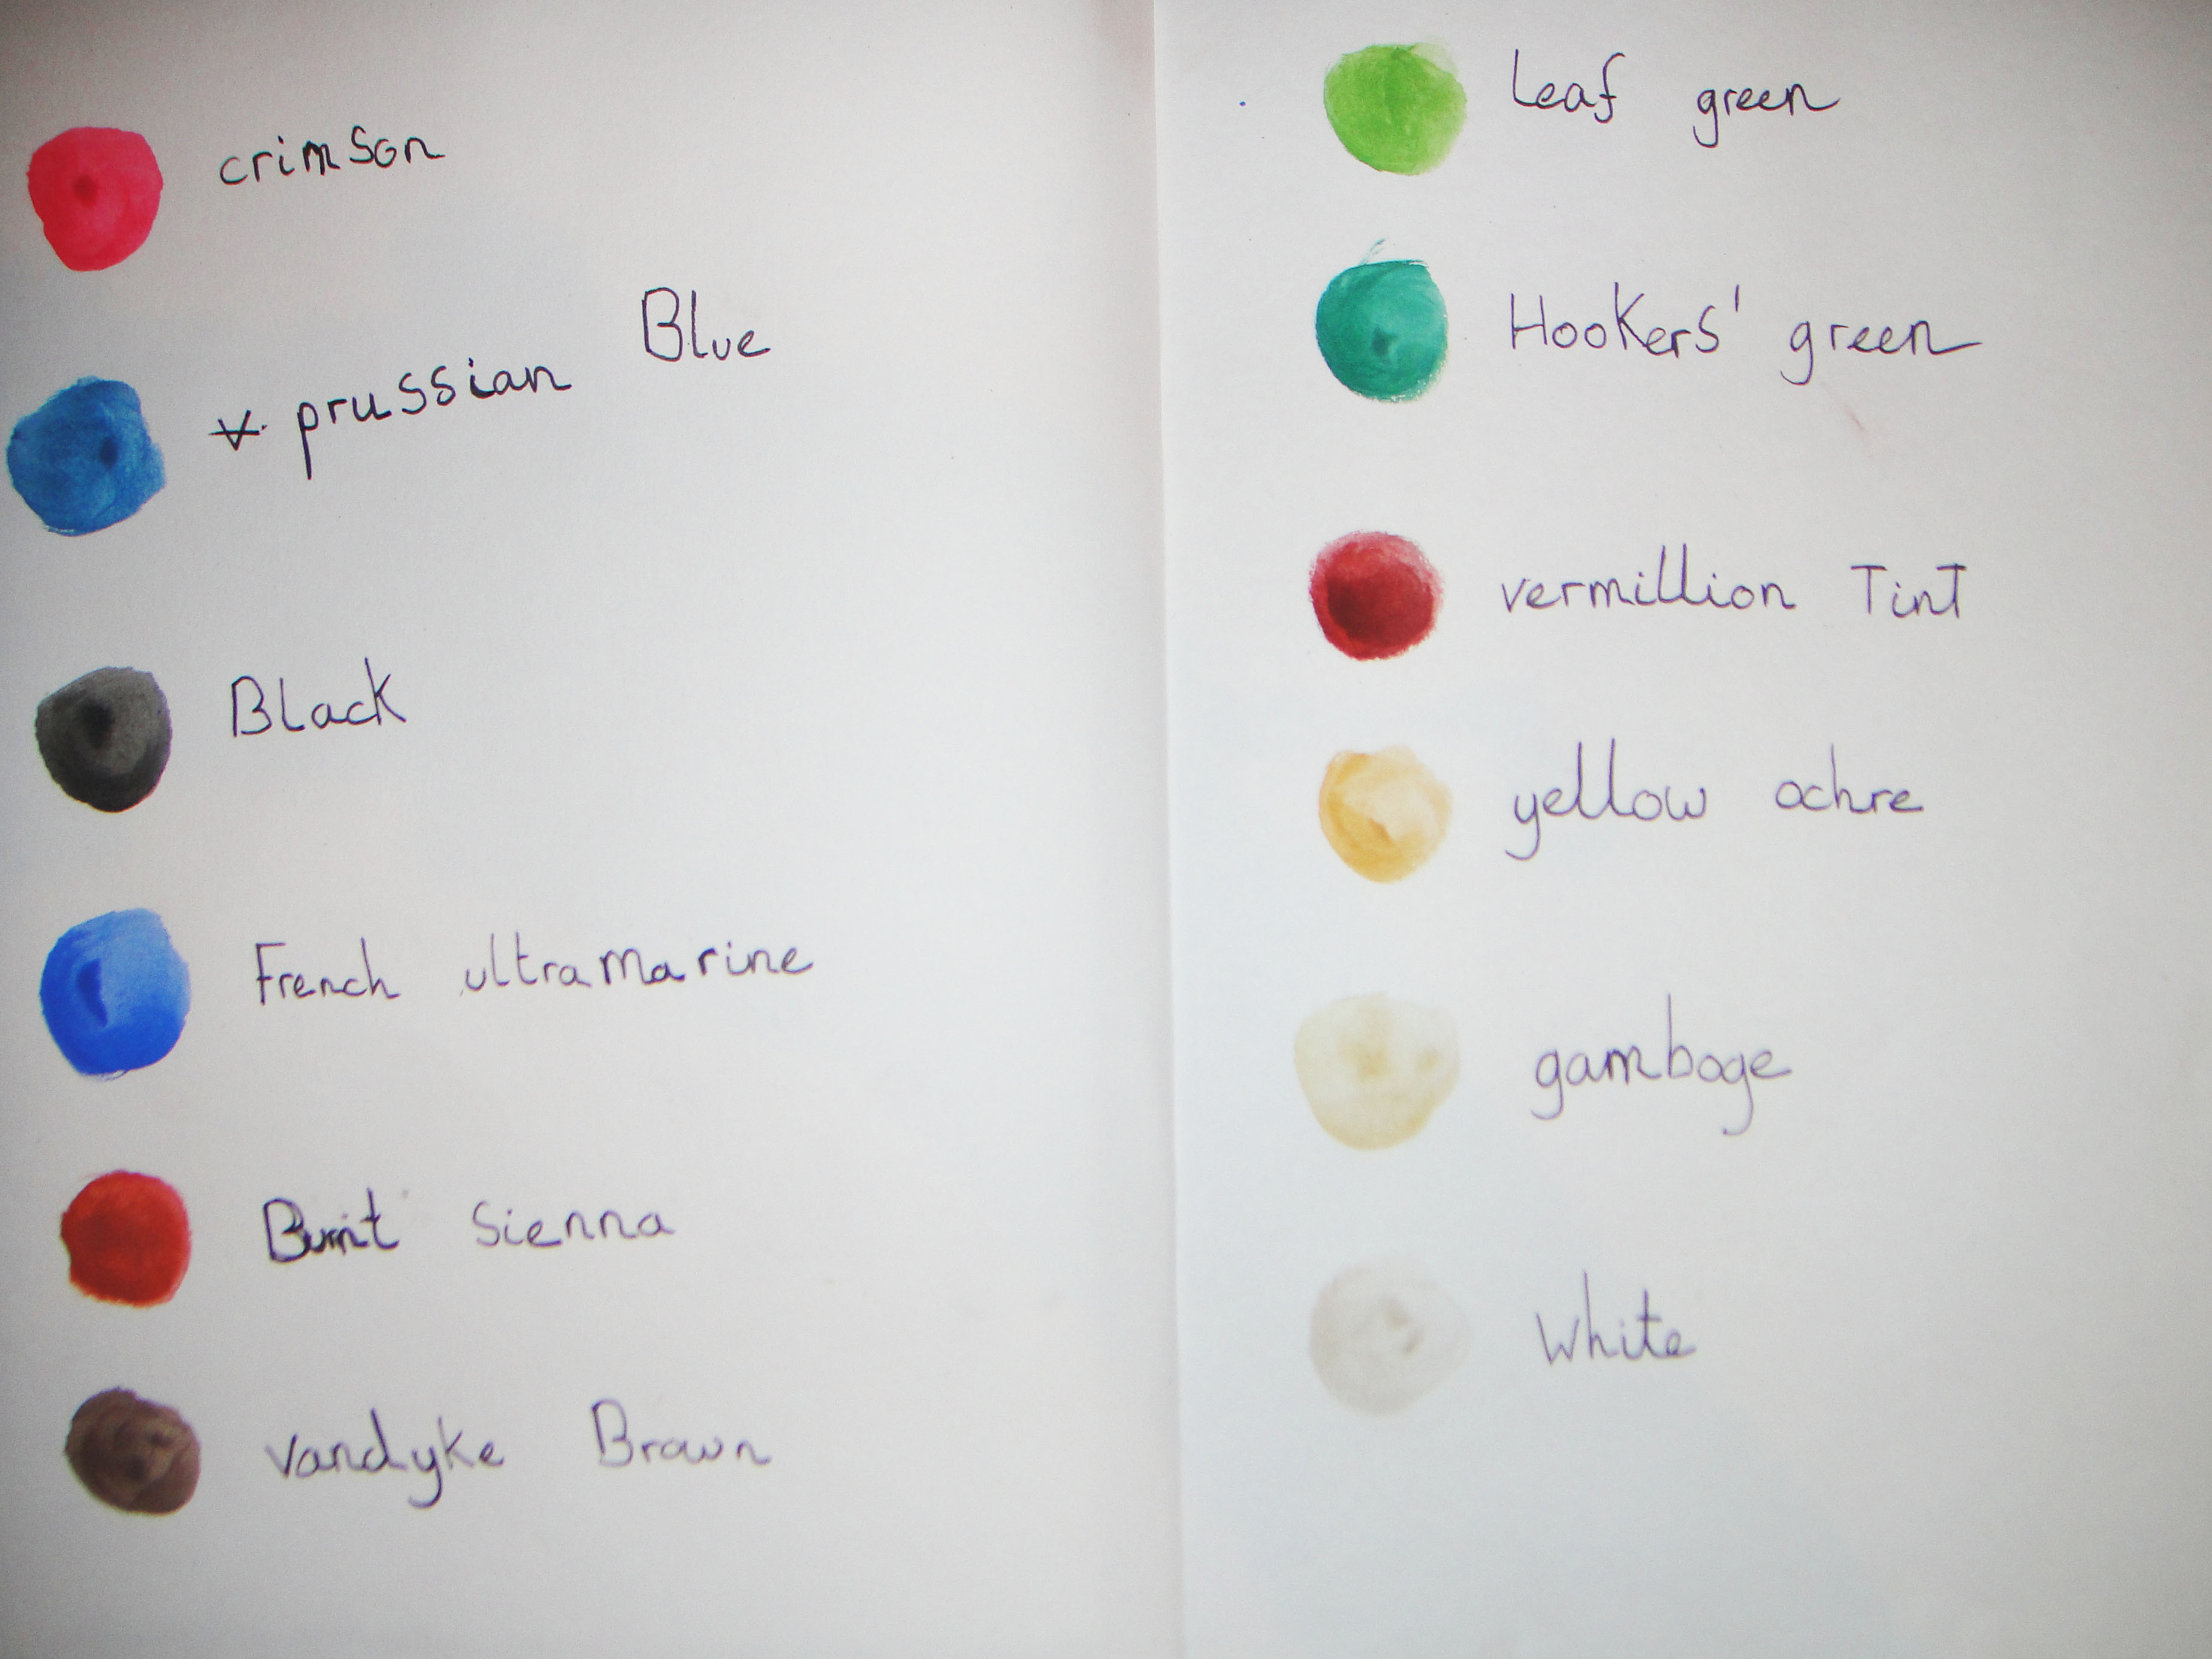 crimson
prussian Blue
Black
French ultramarine
Burnt Sienna
vandyke Brown
Leaf green
Hookers' green
vermillion Tint
yellow ochre
gamboge
White